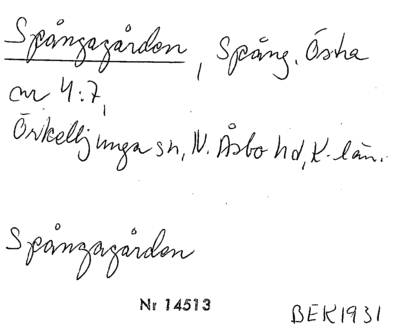 Spångagården, Spång, Östra
nr 4:7,
Örkelljunga sn, N. Åsbo hd, K-län.
Spångagården
Nr 14513
BEK1931